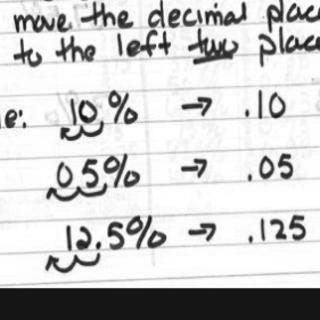 move the decimal place
to the left two place
e: 10% → .10
05% → .05
12.5% → .125